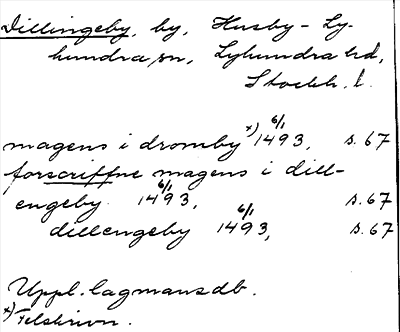 Dillingeby, by, Husby-Ly-
hundra sn, Lyhundra hd,
Stockh. l.
magens i dromby x) 6/1 1493, s. 67
forscriffne magens i dill-
engeby 6/1 1493, s. 67
dillengeby 6/1 1493, s. 67
Uppl. lagmansdb.
x) Felskrivn.